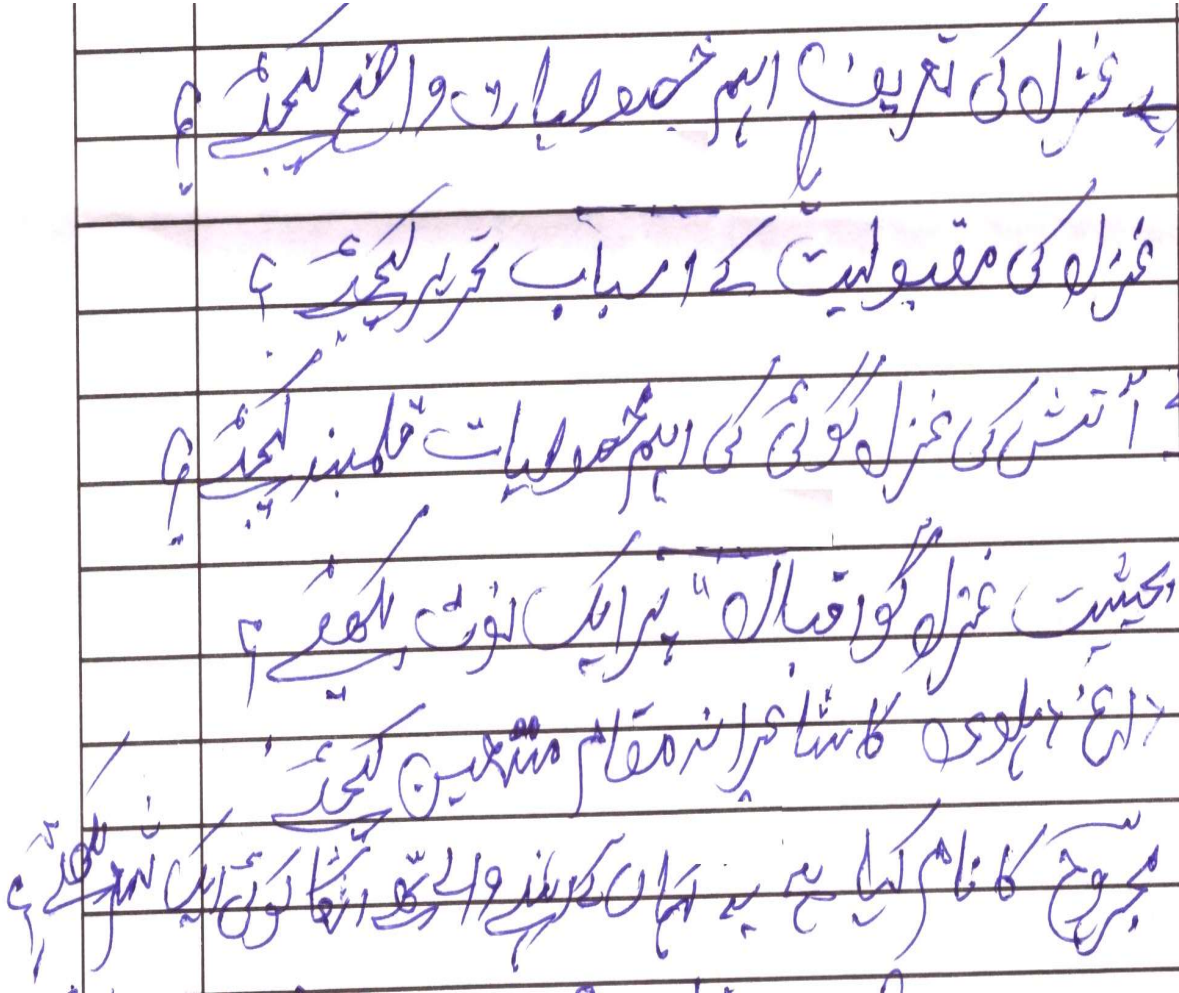 غزل کی تعریف اہم خصوصیات واضح کیجئے ؟
یا
غزل کی مقبولیت کے اسباب تحریر کیجئے ؟
آتش کی غزل گوئی کی اہم خصوصیات قلمبند کیجئے ؟
بحیثیت غزل گو اقبال " پر ایک نوٹ لکھئے ؟
داغ دہلوی کا شاعرانہ مقام متعین کیجئے
مجروح کا نام کیا ہے یہ کہاں کے رہنے والے تھے انکا کوئی ایک شعر لکھئے ؟